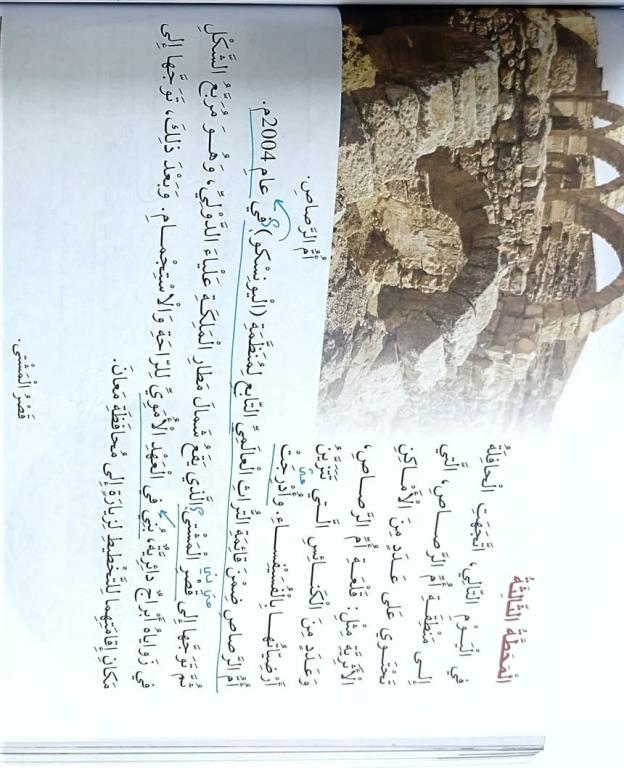 الْمَحَطَّةُ الثَّالِثَةُ
في الْيَوْمِ التّالي، اتَّجَهَتِ الْحافِلَةُ
إِلـى مَنْطِقَـةِ أُمِّ الرَّصـاصِ، الَّتي
تَحْتَـوي عَلـى عَـدَدٍ مِنَ الْأَمـاكِنِ
الْأَثَرِيَّةِ مِثْلِ: قَلْعَـةِ أُمِّ الرَّصـاصِ،
وَعَـدَدٍ مِنَ الْكَنـائِسِ الَّتـي تَتَزَيَّنُ
أَرْضِيّاتُهـا بِالْفُسَيْفِسـاءِ. وَأُدْرِجَتْ
متى
أُمُّ الرَّصاصِ ضِمْنَ قائِمَةِ التُّراثِ الْعالَمِيِّ التّابِعِ لِمُنَظَّمَةِ (الْيونِسْكو) في عامِ 2004م.
؟
أُمُّ الرَّصاصِ.
ثُمَّ تَوَجَّها إِلى قَصْرِ الْمَشْتى الَّذي يَقَعُ شَمالَ مَطارِ الْمَلِكَةِ عَلْياءَ الدَّوْلِيِّ، وَهُـوَ مُرَبَّعُ الشَّكْلِ
متى بُني
؟
في زَواياهُ أَبْراجٌ دائِرِيَّةٌ، بُنِيَ في الْعَهْدِ الْأُمَوِيِّ لِلرّاحَةِ وَالْاسْتِجْمـامِ. وَبَعْدَ ذلِكَ، تَوَجَّها إِلى
مَكانِ إِقامَتِهِما لِلتَّخْطيطِ لِزِيارَةٍ إِلى مُحافَظَةِ مَعانَ.
قَصْرُ الْمَشْتى.